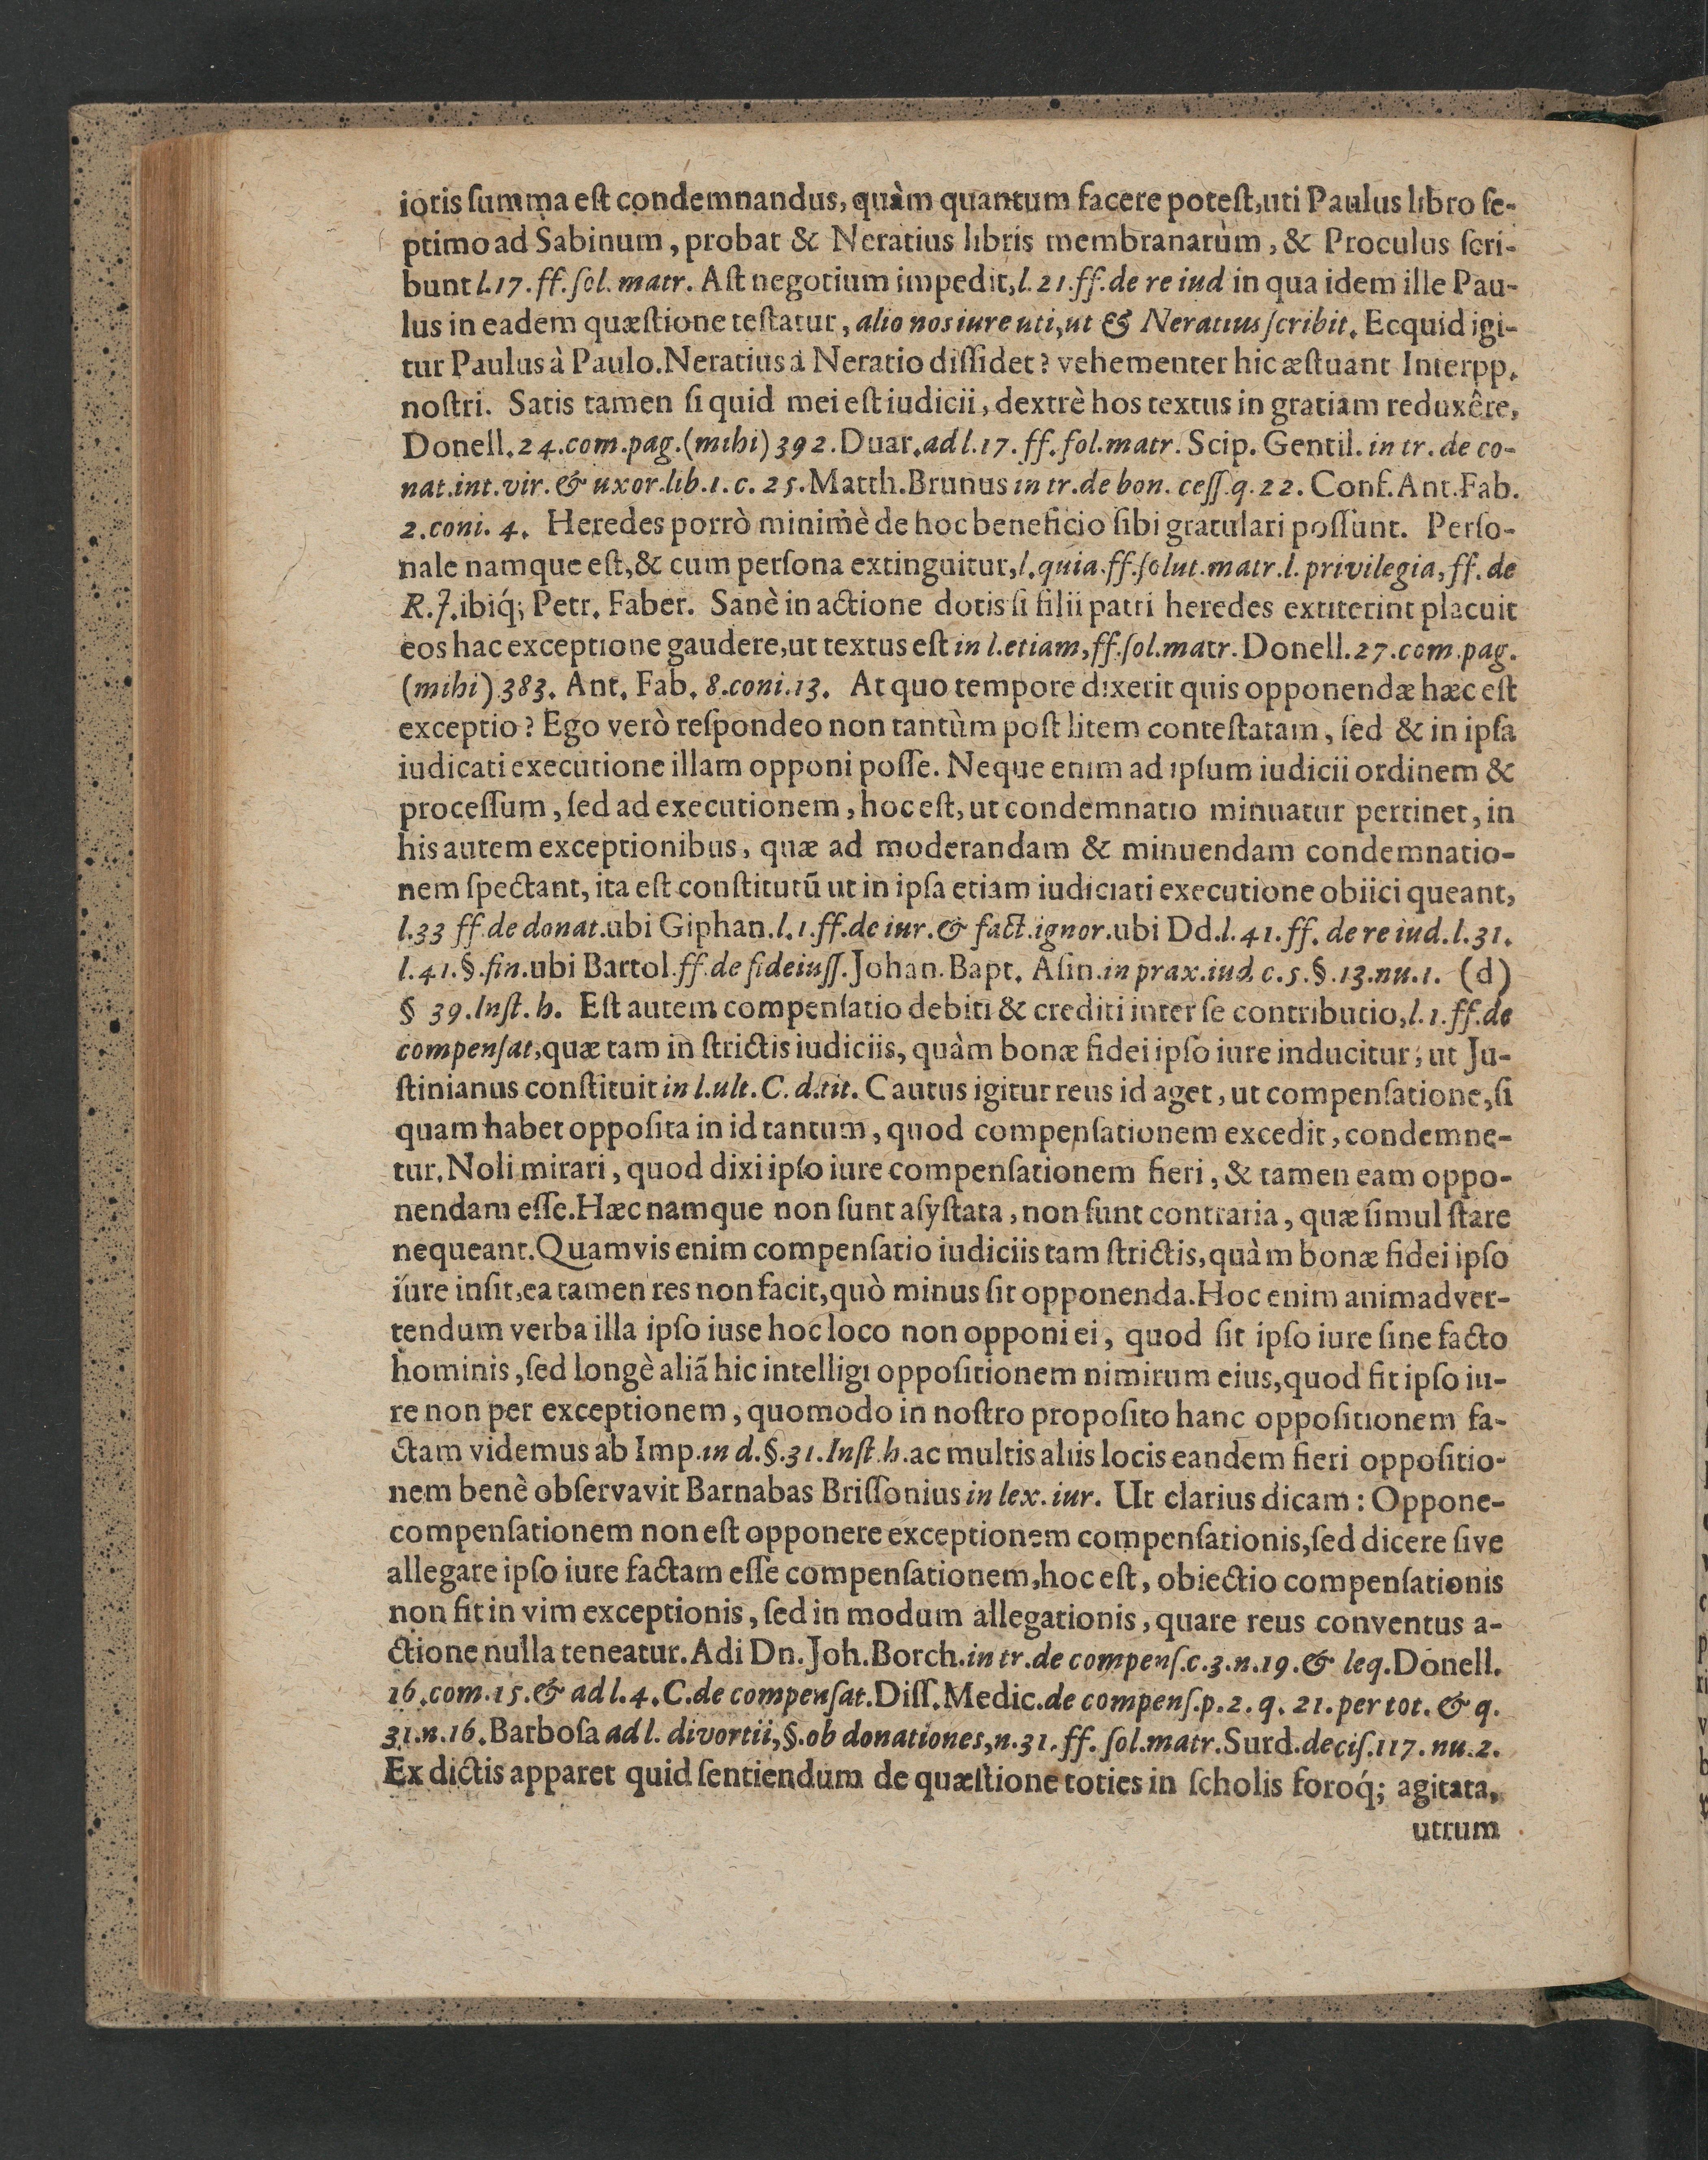 ioris ſumma eſt condemnandus, quàm quantum facere poteſt, uti Paulus libro ſe-
ptimo ad Sabinum, probat & Neratius libris membranarùm, & Proculus ſcri-
bunt l. 17. ff. ſol. matr. Aſt negotium impedit, l. 21. ff. de re iud in qua idem ille Pau-
lus in eadem quæſtione teſtatur, alio nos iure uti, ut & Neratius ſcribit. Ecquid igi-
tur Paulus à Paulo. Neratius à Neratio diſſidet? vehementer hic æſtuant Interpp.
noſtri. Satis tamen ſi quid mei eſt iudicii, dextrè hos textus in gratiam reduxêre,
Donell. 24. com. pag. (mihi) 392. Duar. ad l. 17. ff. ſol. matr. Scip. Gentil. in tr. de co-
nat. int. vir. & uxor. lib. 1. c. 25. Matth. Brunus in tr. de bon. ceſſ. q. 22. Conf. Ant. Fab.
2. coni. 4. Heredes porrò minimè de hoc beneficio ſibi gratulari poſſunt. Perſo-
nale namque eſt, & cum perſona extinguitur, l. quia. ff. ſolut. matr. l. privilegia, ff. de
R. J. ibiq́; Petr. Faber. Sanè in actione dotis ſi filii patri heredes extiterint placuit
eos hac exceptione gaudere, ut textus eſt in l. etiam, ff. ſol. matr. Donell. 27. com. pag.
(mihi) 383. Ant. Fab. 8. coni. 13. At quo tempore dixerit quis opponendæ hæc eſt
exceptio? Ego verò reſpondeo non tantùm poſt litem conteſtatam, ſed & in ipſa
iudicati executione illam opponi poſſe. Neque enim ad ipſum iudicii ordinem &
proceſſum, ſed ad executionem, hoc eſt, ut condemnatio minuatur pertinet, in
his autem exceptionibus, quæ ad moderandam & minuendam condemnatio-
nem ſpectant, ita eſt conſtitutũ ut in ipſa etiam iudiciati executione obiici queant,
l. 33 ff. de donat. ubi Giphan. l. 1. ff. de iur. & fact. ignor. ubi Dd. l. 41. ff. de re iud. l. 31.
l. 41. §. fin. ubi Bartol. ff. de fideiuſſ. Johan. Bapt. Aſin. in prax. iud. c. 5. §. 13. nu. 1. (d)
§ 39. Inſt. h. Eſt autem compenſatio debiti & crediti inter ſe contributio, l. 1. ff. de
compenſat, quæ tam in ſtrictis iudiciis, quàm bonæ fidei ipſo iure inducitur, ut Ju-
ſtinianus conſtituit in l. ult. C. d. tit. Cautus igitur reus id aget, ut compenſatione, ſi
quam habet oppoſita in id tantum, quod compenſationem excedit, condemne-
tur. Noli mirari, quod dixi ipſo iure compenſationem fieri, & tamen eam oppo-
nendam eſſe. Hæc namque non ſunt aſyſtata, non ſunt contraria, quæ ſimul ſtare
nequeant. Quamvis enim compenſatio iudiciis tam ſtrictis, quàm bonæ fidei ipſo
iure inſit, ea tamen res non facit, quò minus ſit opponenda. Hoc enim animadver-
tendum verba illa ipſo iuse hoc loco non opponi ei, quod ſit ipſo iure ſine facto
hominis, ſed longè aliã hic intelligi oppoſitionem nimirum eius, quod fit ipſo iu-
re non per exceptionem, quomodo in noſtro propoſito hanc oppoſitionem fa-
ctam videmus ab Imp. in d. §. 31. Inſt. h. ac multis aliis locis eandem fieri oppoſitio-
nem benè obſervavit Barnabas Briſſonius in lex. iur. Ut clarius dicam: Oppone-
compenſationem non eſt opponere exceptionem compenſationis, ſed dicere ſive
allegare ipſo iure factam eſſe compenſationem, hoc eſt, obiectio compenſationis
non fit in vim exceptionis, ſed in modum allegationis, quare reus conventus a-
ctione nulla teneatur. Adi Dn. Joh. Borch. in tr. de compenſ. c. 3. n. 19. & leq. Donell.
16. com. 15. & ad l. 4. C. de compenſat. Diſſ. Medic. de compenſ. p. 2. q. 21. per tot. & q.
31. n. 16. Barboſa ad l. divortii, §. ob donationes, n. 31. ff. ſol. matr. Surd. deciſ. 117. nu. 2.
Ex dictis apparet quid ſentiendum de quæſtione toties in ſcholis foroq́; agitata,
utrum